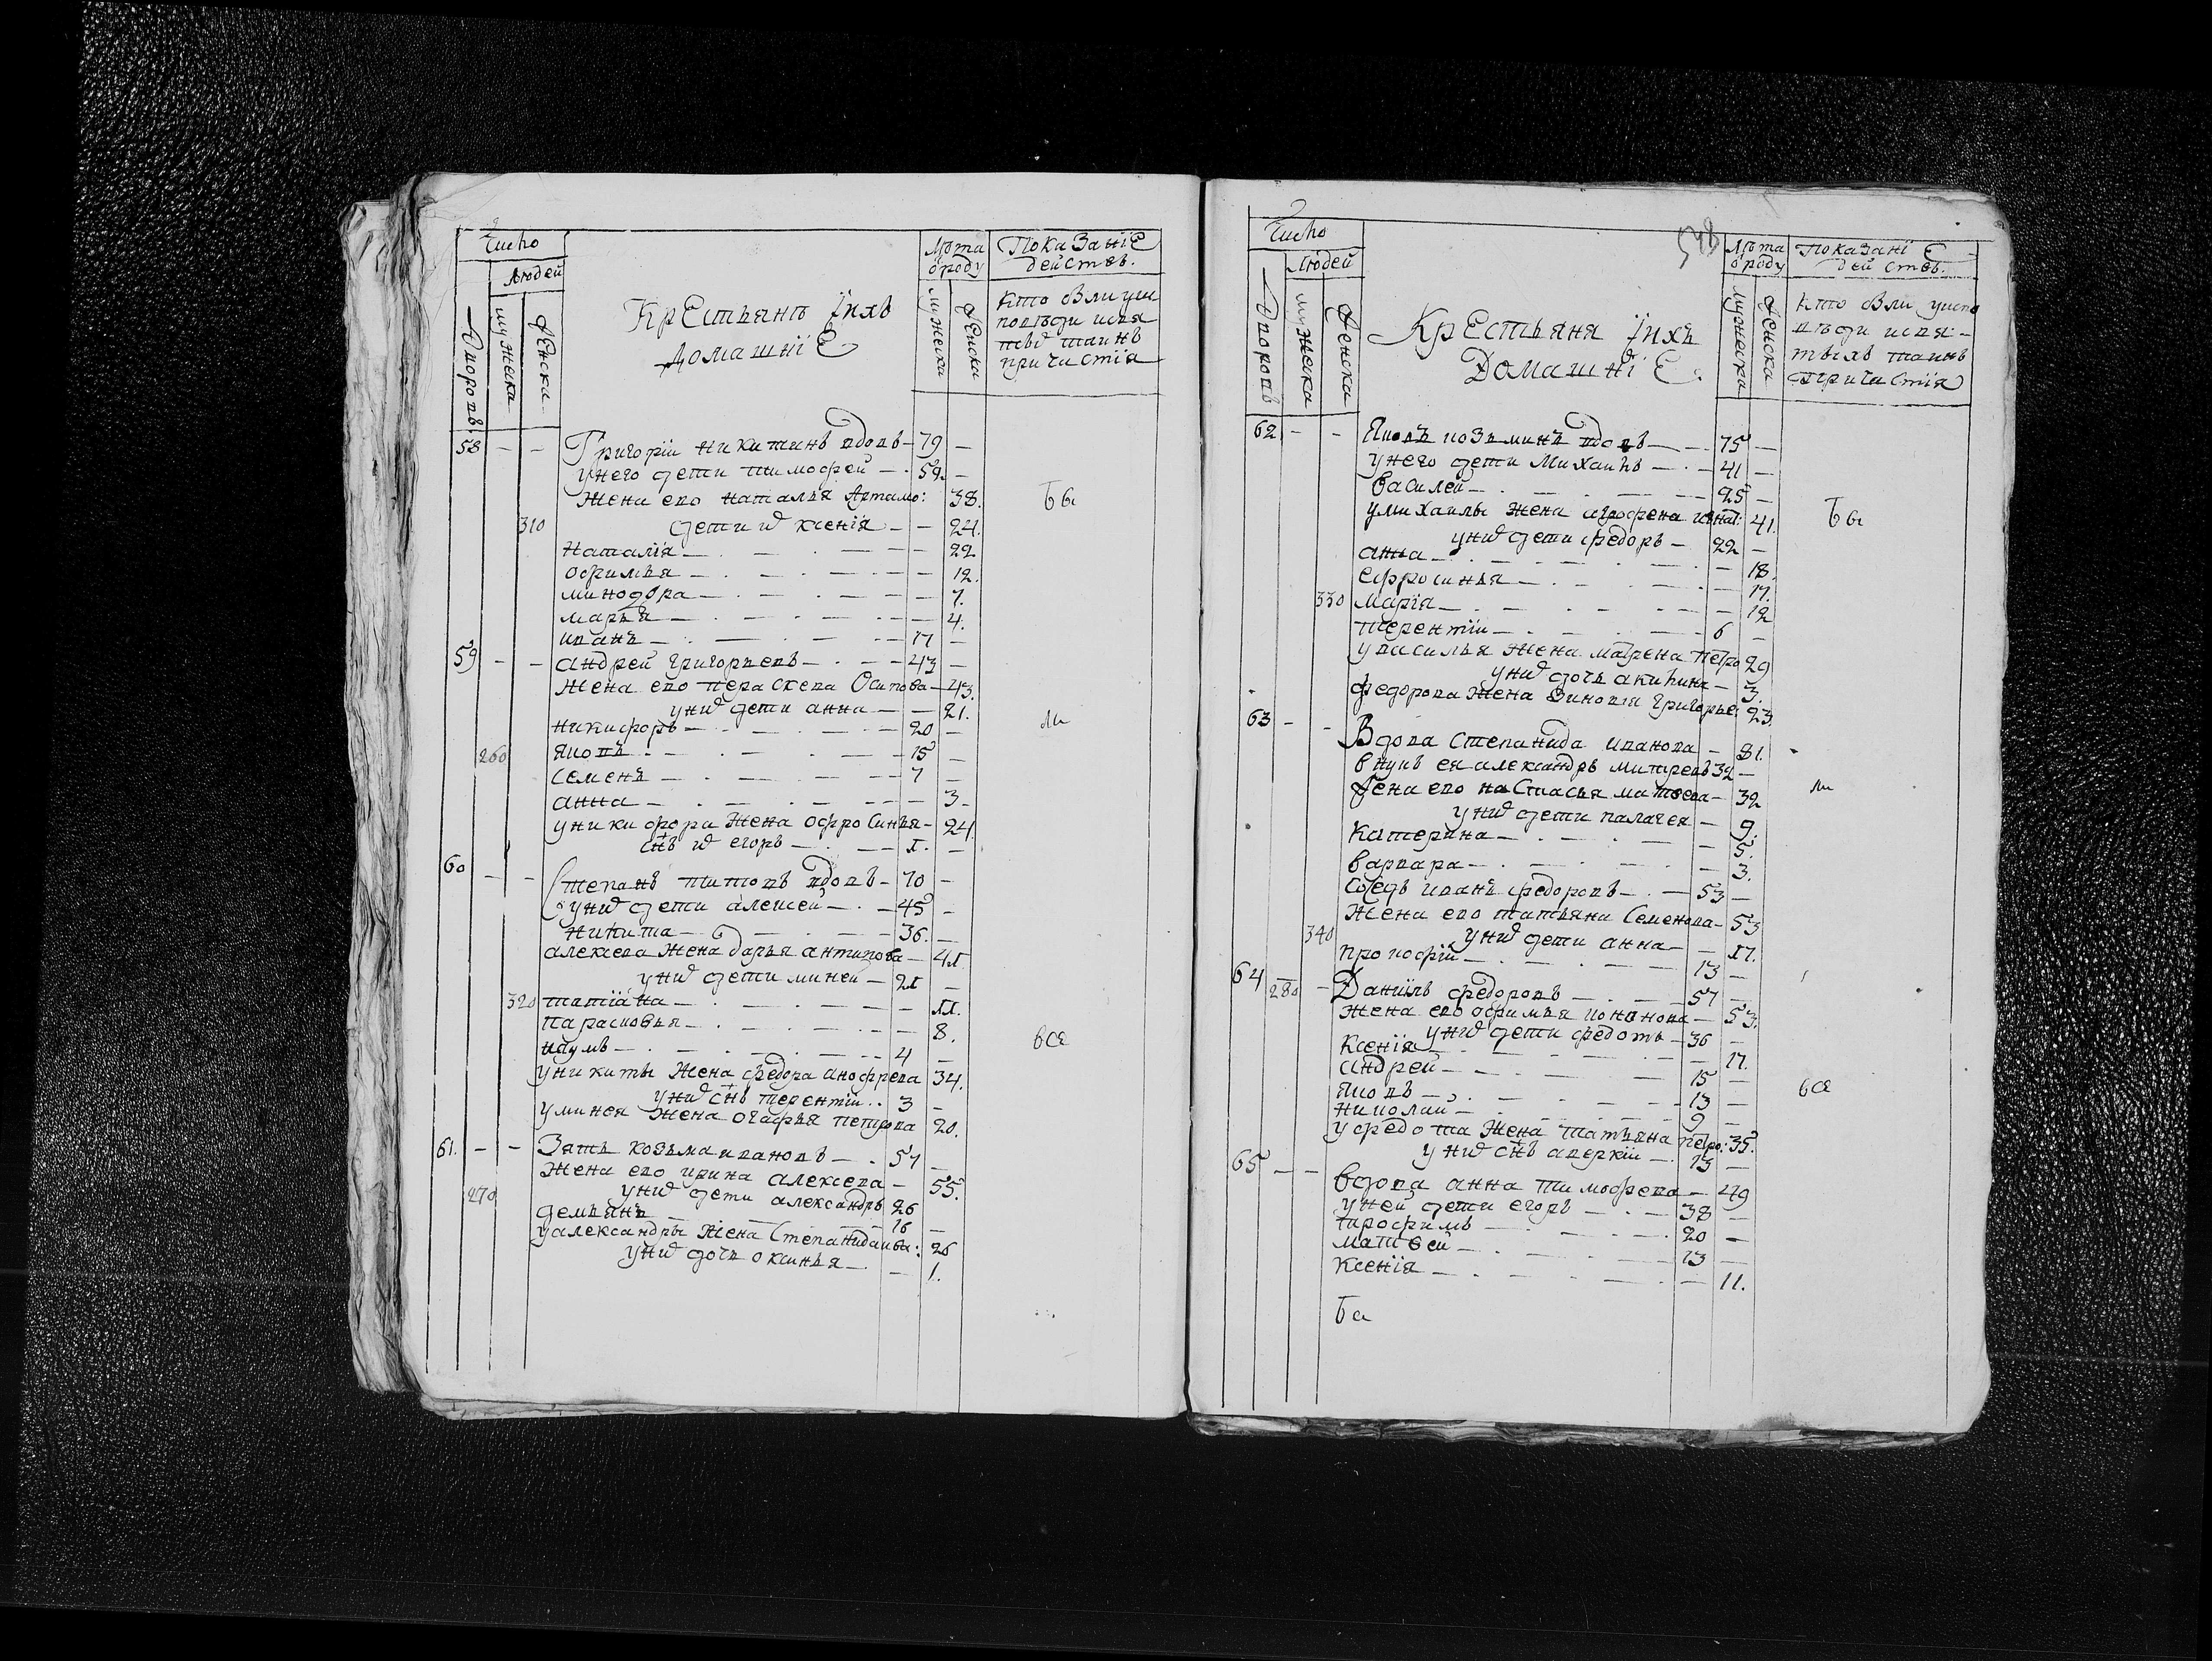 Число
Людей
Дворовъ
мужеска
Женска
Крестьянъ Їихъ
Домашніе
Лѣта
ѿроду
мужеска
Женска
Показаніе
действъ.
кто был уис
поведи исвя
тыѯ таинъ
причастія
58 - - Григорїи никитинъ вдовъ - 79 -
унего дети тимофей - 59. -
Жена ево наталья Артамо: 38.
бы
310 дети иѯ ксенїя - - 24.
Наталїя - - 22
офимья - - 12.
минодора - - 7.
марья - - 4.
иванъ - 17 -
59 - - андрей григорьевъ - 43 -
Жена ево пераскева Осипова - 43.
униѯ дети анна - - 21.
никифоръ - 20 -
ли
260 яковъ - 15 -
семенъ - 7 -
анна - - 3 -
уникифора жена офросинья - 24.
снъ иѯ егоръ - 1. -
60 - - Степанъ титовъ вдовъ - 70 -
униѯ дети алексей - 45 -
никита - 36. -
алексева Жена дарья антипова - 41
униѯ дети миней - 21 -
320 татїана - - 11.
парасковья - - 8.
наумъ - 4 -
все
уникиты Жена федора анофрева 34.
униѯ снъ терентїй .. 3 -
уминея Жена огафья петрова 20.
61. - - Зять козьма ивановъ - 57 -
Жена ево ирина алексева - 55.
270 униѯ дети александръ 26
демьянъ - 16 -
уалександры Жена Степанида ива: 26
униѯ дочь оксинья - - 1.
548
Число
Людей
Дворовъ
мужеска
Женска
Крестьяня Їихъ
Домашнїе
Лѣта
ѿроду
мужеска
Женска
Показанї Е
действъ.
кто былї уиспо
вѣди исвя-
тыхъ таинъ
Причастїя
62. - - Яковъ козьминъ вдовъ - 75 -
унего дети Михаилъ - 41 -
василей - 25 -
умихаилы жена агрофена игнат: 41.
бы
униѯ дети федоръ - 22 -
анна - - 18.
ефросинья - - 17.
330 марїя - - 12
терентїи - 6 -
увасилья жена матрена петро 29
униѯ дочь акилина - 3.
федорова жена Зиновїя григорье: 23.
63 - - Вдова степанида иванова - 81.
внукъ ея александръ митревъ 32 -
Жена ево настасья матвева - 32
ли
униѯ дети палагея - 9.
Катерина - - 5.
варвара - - 3.
соседъ иванъ федоровъ - 53 -
Жена ево татьяна семенова - 53
340 униѯ дети анна - - 17.
прокофїй - 13 -
64 280 - Данїилъ федоровъ - 57 -
Жена ево офимья кононова - 53.
униѯ дети федотъ - 36 -
Ксенїя - - 17.
андрей - 15 -
все
яковъ - 13 -
николай - 9 -
уфедота Жена татьяна петро: 35.
униѯ снъ аверкїи - 13 -
65 - - вдова анна тимофрева - 49
уней дети егоръ - 38 -
трофимъ - 20 -
матвей - 13 -
Ксенїя - - 11.
бы